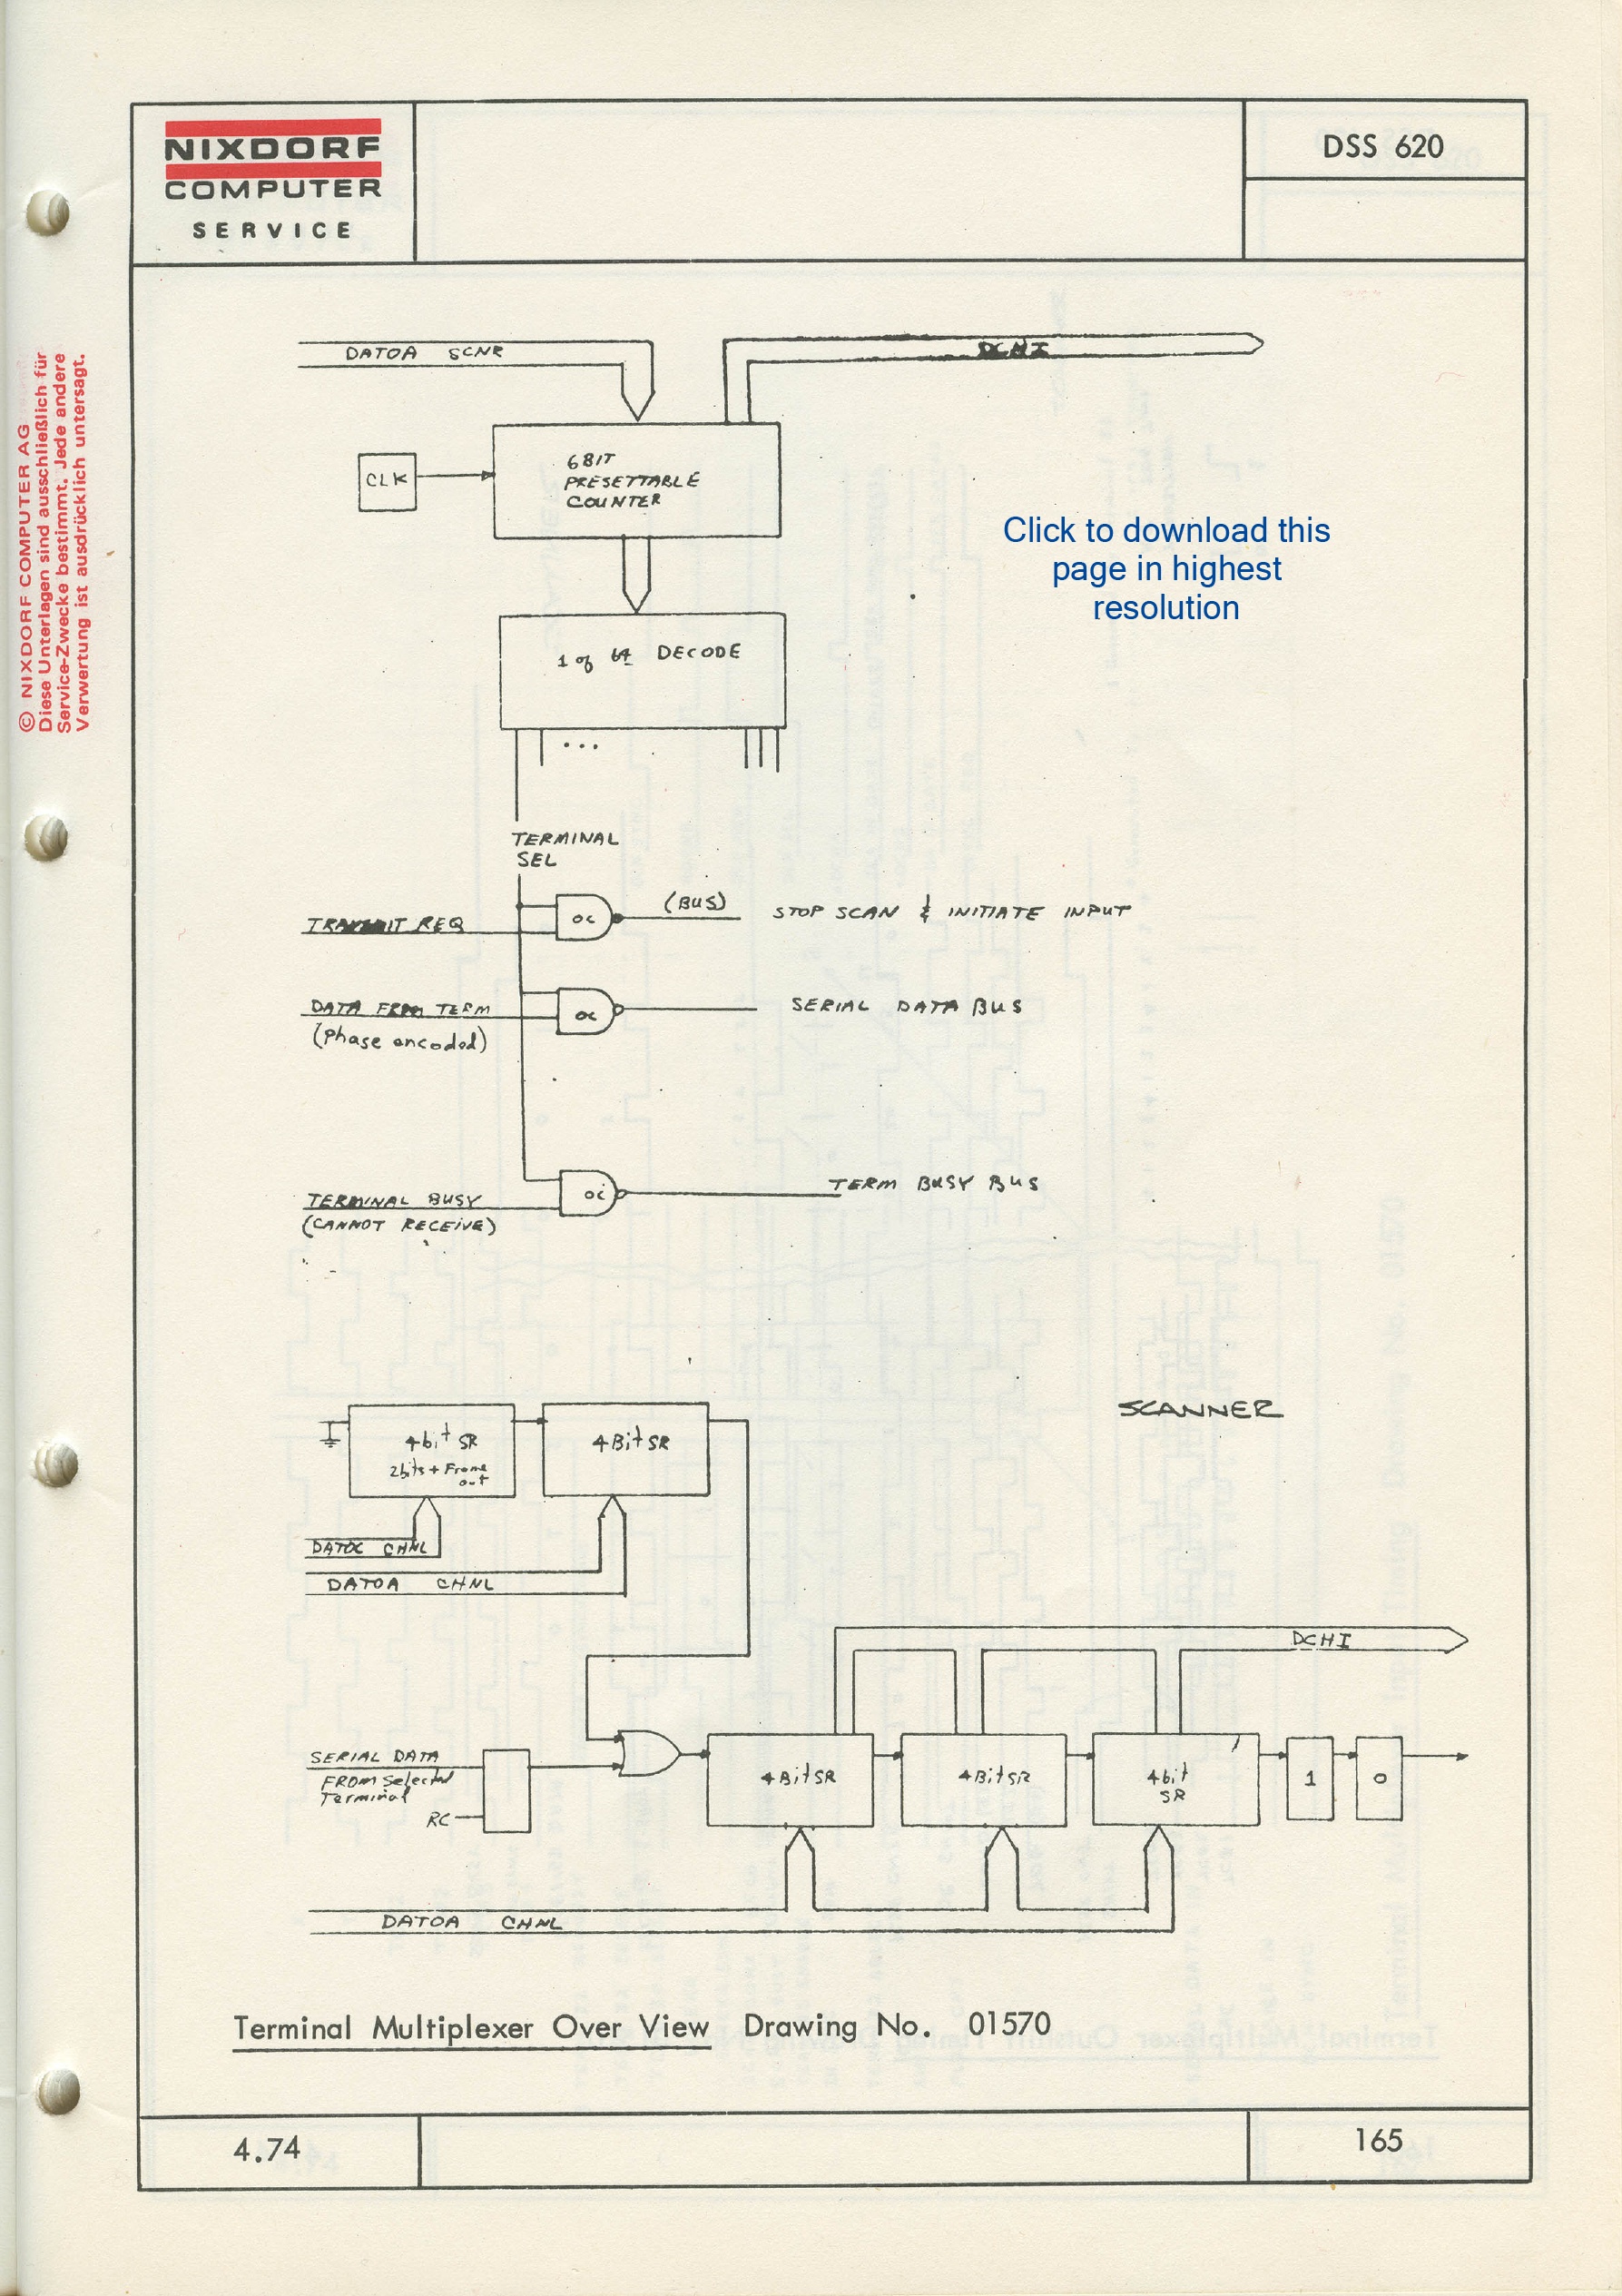 NIXDORF
COMPUTER
SERVICE
DSS 620
© NIXDORF COMPUTER AG
Diese Unterlagen sind ausschließlich für
Service-Zwecke bestimmt. Jede andere
Verwertung ist ausdrücklich untersagt.
DATOA SCNR
DCHI
CLK
6BIT
PRESETTABLE
COUNTER
Click to download this
page in highest
resolution
1 of 64 DECODE
...
TERMINAL
SEL
TRANSMIT REQ
OC
(BUS)
STOP SCAN & INITIATE INPUT
DATA FROM TERM
(Phase encoded)
OC
SERIAL DATA BUS
TERMINAL BUSY
(CANNOT RECEIVE)
OC
TERM BUSY BUS
SCANNER
4bit SR
2bits + Frame
out
4Bit SR
DATOC CHNL
DATOA CHNL
DCHI
SERIAL DATA
FROM Selected
Terminal
RC
4Bit SR
4Bit SR
4bit
SR
1
0
DATOA CHNL
Terminal Multiplexer Over View Drawing No. 01570
4.74
165